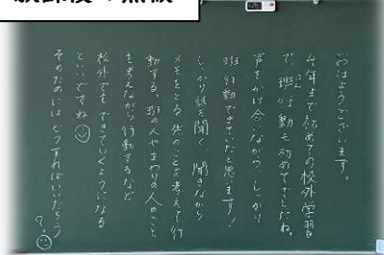 おはようございます。
今年度初めての校外学習
で、班行動も初めてでしたね。
声をかけ合いながら、しっかり
班行動できていたと思います!
しっかり話を聞く、聞きながら
メモをとる、先のことを考えて行
動する、班の人やまわりの人のこと
を考えながら行動するなど
校外でもできていくようになる
といいですね
そのためにはどうすればいいだろう?